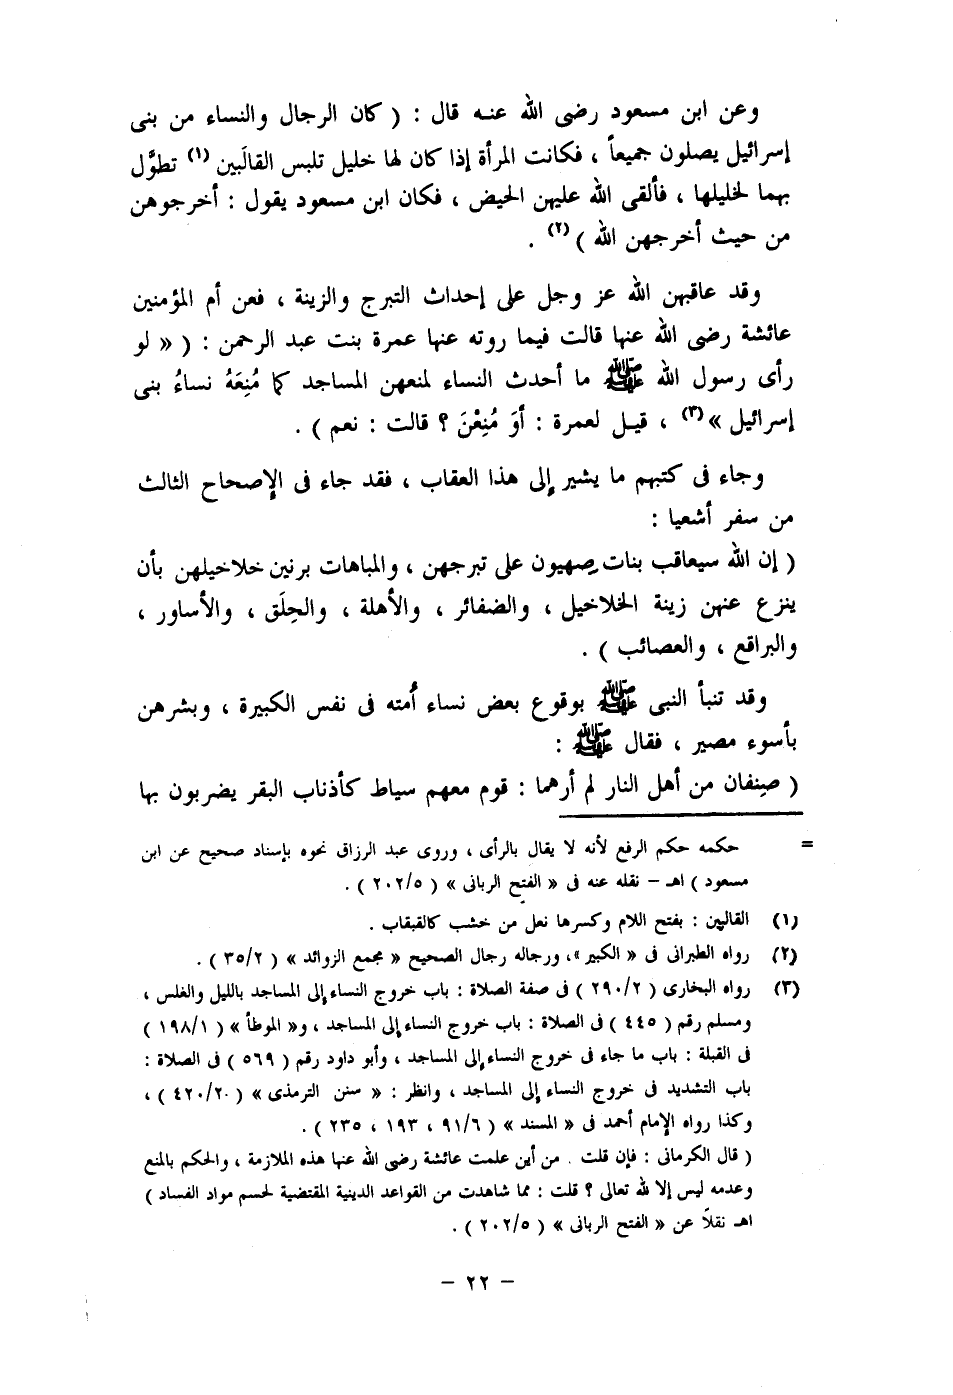 وعن ابن مسعود رضى الله عنـه قال : ( كان الرجال والنساء من بنى
إسرائيل يصلون جميعاً ، فكانت المرأة إذا كان لها خليل تلبس القالَبين (١) تطوَّل
بهما لخليلها ، فألقى الله عليهن الحيض ، فكان ابن مسعود يقول : أخرجوهن
من حيث أخرجهن الله ) (٢) .
وقد عاقبهن الله عز وجل على إحداث التبرج والزينة ، فعن أم المؤمنين
عائشة رضى الله عنها قالت فيما روته عنها عمرة بنت عبد الرحمن : ( « لو
رأى رسول الله ﷺ ما أحدث النساء لمنعهن المساجد كما مُنِعَهُ نساءُ بنى
إسرائيل » (٣) ، قيـل لعمرة : أوَ مُنِعْنَ ؟ قالت : نعم ) .
وجاء فى كتبهم ما يشير إلى هذا العقاب ، فقد جاء فى الإصحاح الثالث
من سفر أشعيا :
( إن الله سيعاقب بنات صهيون على تبرجهن ، والمباهات برنين خلاخيلهن بأن
ينزع عنهن زينة الخلاخيل ، والضفائر ، والأهلة ، والحِلَق ، والأساور ،
والبراقع ، والعصائب ) .
وقد تنبأ النبى ﷺ بوقوع بعض نساء أُمته فى نفس الكبيرة ، وبشرهن
بأسوء مصير ، فقال ﷺ :
( صِنفان من أهل النار لم أرهما : قوم معهم سياط كأذناب البقر يضربون بها
= حكمه حكم الرفع لأنه لا يقال بالرأى ، وروى عبد الرزاق نحوه بإسناد صحيح عن ابن
مسعود ) اهـ – نقله عنه فى « الفتح الربانى » ( ٢٠٢/٥ ) .
(١) القالبين : بفتح اللام وكسرها نعل من خشب كالقبقاب .
(٢) رواه الطبرانى فى « الكبير »، ورجاله رجال الصحيح « مجمع الزوائد » ( ٣٥/٢ ) .
(٣) رواه البخارى ( ٢٩٠/٢ ) فى صفة الصلاة : باب خروج النساء إلى المساجد بالليل والغلس ،
ومسلم رقم ( ٤٤٥ ) فى الصلاة : باب خروج النساء إلى المساجد ، و« الموطأ » ( ١٩٨/١ )
فى القبلة : باب ما جاء فى خروج النساء إلى المساجد ، وأبو داود رقم ( ٥٦٩ ) فى الصلاة :
باب التشديد فى خروج النساء إلى المساجد ، وانظر : « سنن الترمذى » ( ٤٢٠/٢٠ ) ،
وكذا رواه الإمام أحمد فى « المسند » ( ٩١/٦ ، ١٩٣ ، ٢٣٥ ) .
( قال الكرمانى : فإن قلت . من أين علمت عائشة رضى الله عنها هذه الملازمة ، والحكم بالمنع
وعدمه ليس إلا لله تعالى ؟ قلت : مما شاهدت من القواعد الدينية المقتضية لحسم مواد الفساد )
اهـ نقلاً عن « الفتح الربانى » ( ٢٠٢/٥ ) .
– ٢٢ –